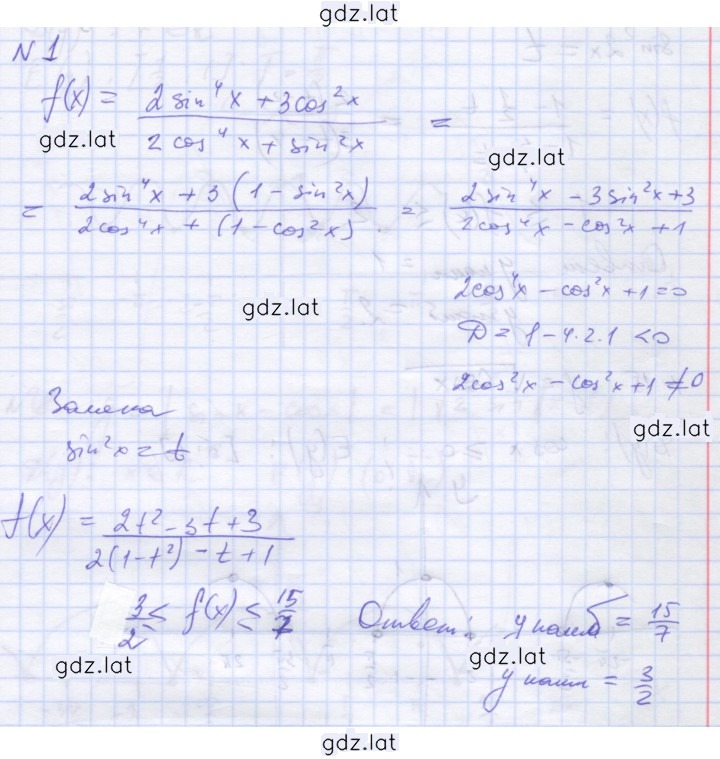 gdz.lat
N 1
f(x) = (2 sin⁴x + 3cos²x)/(2 cos⁴x + sin²x) =
gdz.lat
gdz.lat
= (2sin⁴x + 3(1 - sin²x))/(2cos⁴x + (1 - cos²x)) = (2 sin⁴x - 3sin²x + 3)/(2cos⁴x - cos²x + 1)
2cos⁴x - cos²x + 1 = 0
gdz.lat
D = 1 - 4·2·1 < 0
2cos²x - cos²x + 1 ≠ 0
Замена
gdz.lat
sin²x = t
f(x) = (2t² - 3t + 3)/(2(1 - t²) - t + 1)
3/2 ≤ f(x) ≤ 15/7 Ответ: y наиб = 15/7
gdz.lat
gdz.lat
y наим = 3/2
gdz.lat